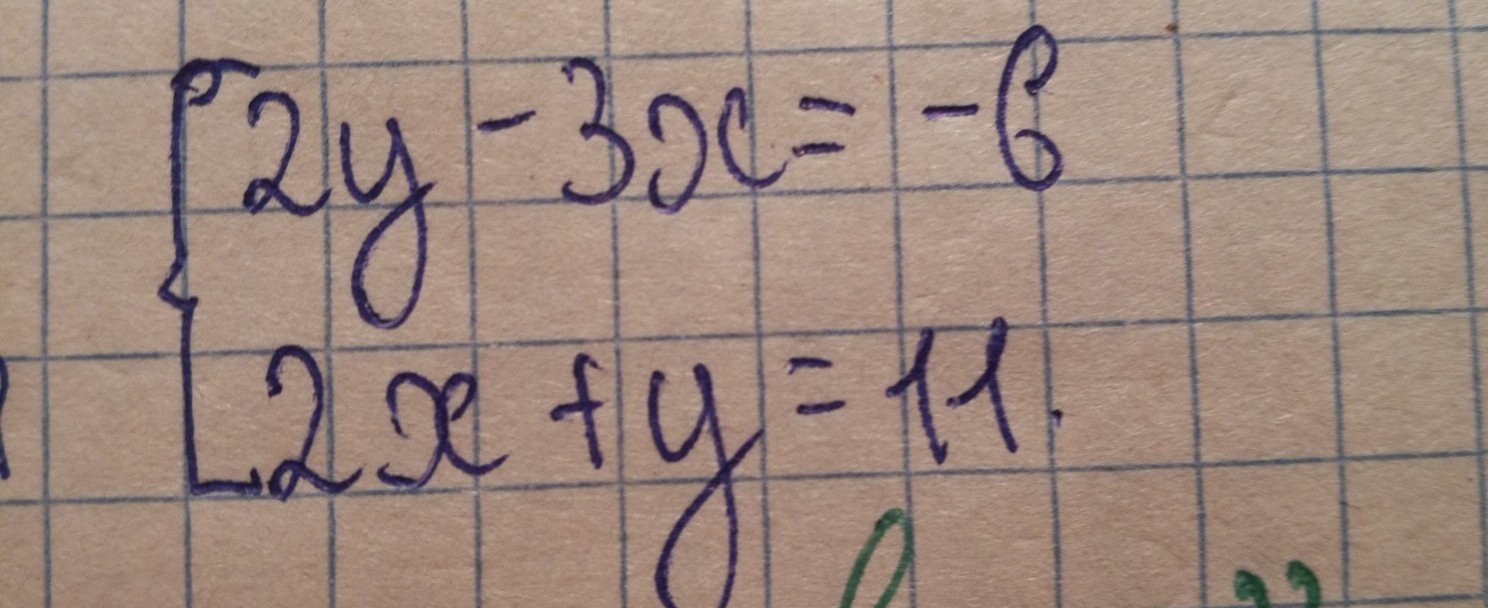 2y - 3x = -6
2x + y = 11.